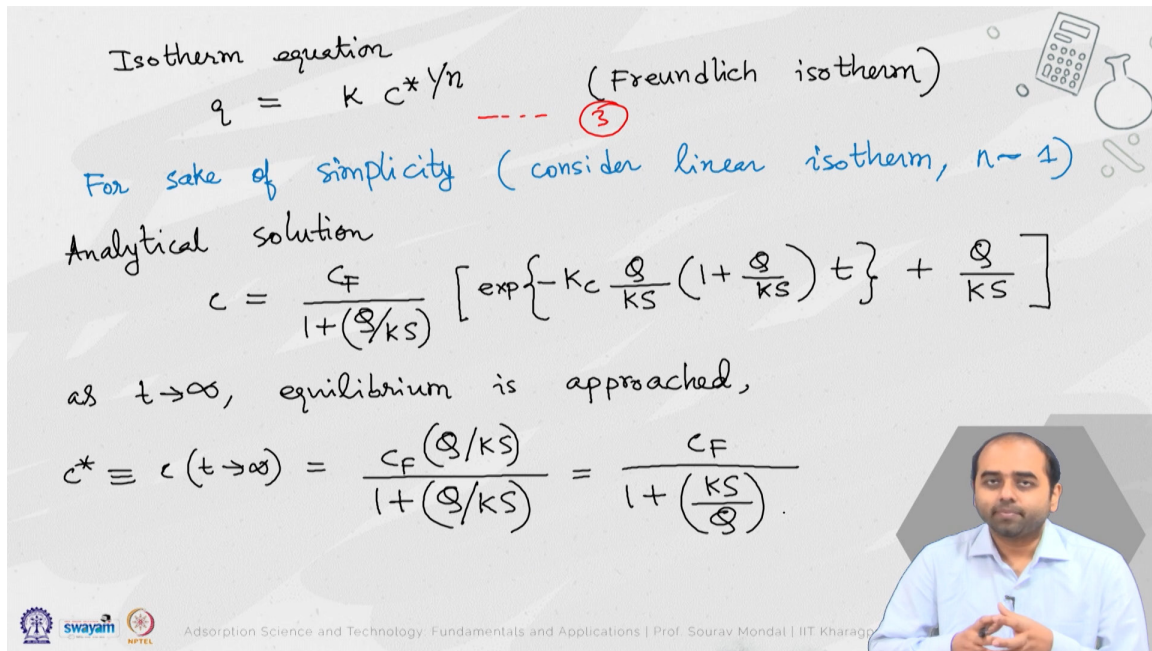 Isotherm equation
q = K c* 1/n (Freundlich isotherm)
---- 3
For sake of simplicity (consider linear isotherm, n~ 1)
Analytical solution
c = CF / 1+(Q/KS) [exp{-Kc Q/KS (1+ Q/KS) t} + Q/KS]
as t→∞, equilibrium is approached,
c* ≡ c (t→∞) = CF (Q/KS) / 1+(Q/KS) = CF / 1+(KS/Q).
swayam
NPTEL
Adsorption Science and Technology: Fundamentals and Applications | Prof. Sourav Mondal | IIT Kharagp